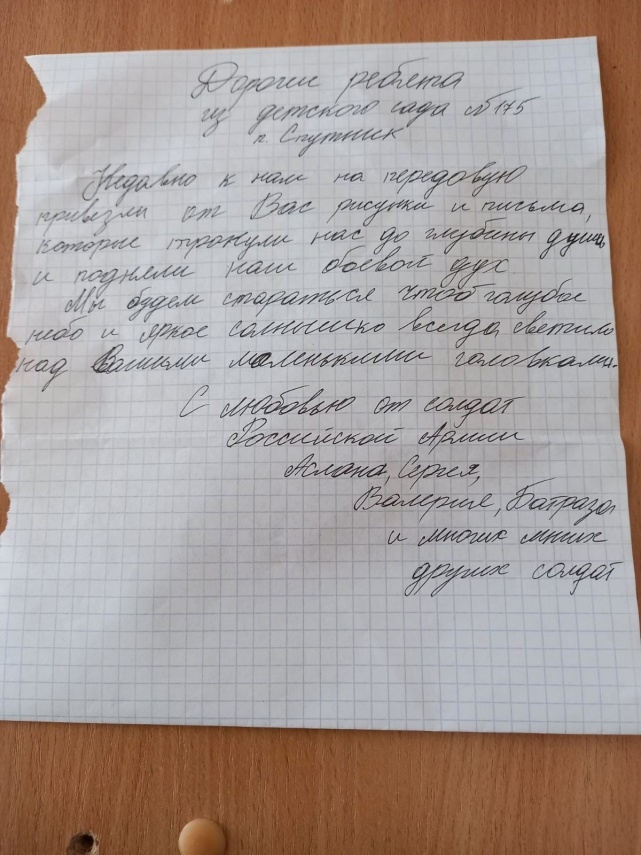 Дорогие ребята
из детского сада №175
п. Спутник
Недавно к нам на передовую
привезли от Вас рисунки и письма,
которые тронули нас до глубины души
и подняли наш боевой дух
Мы будем стараться чтоб голубое
небо и яркое солнышко всегда светило
над Вашими маленькими головками.
С любовью от солдат
Российской Армии
Аслана, Сергея,
Валерия, Батраза
и многих мних
других солдат